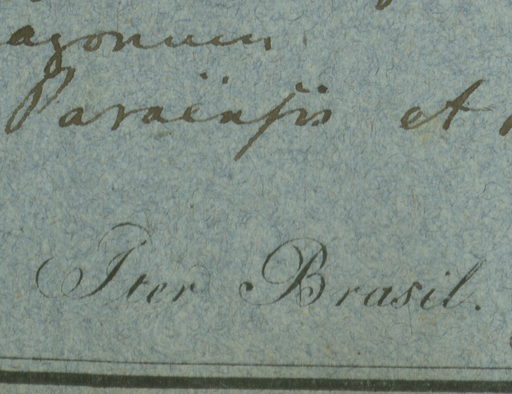 agonum
Paraënsis et
Iter Brasil.